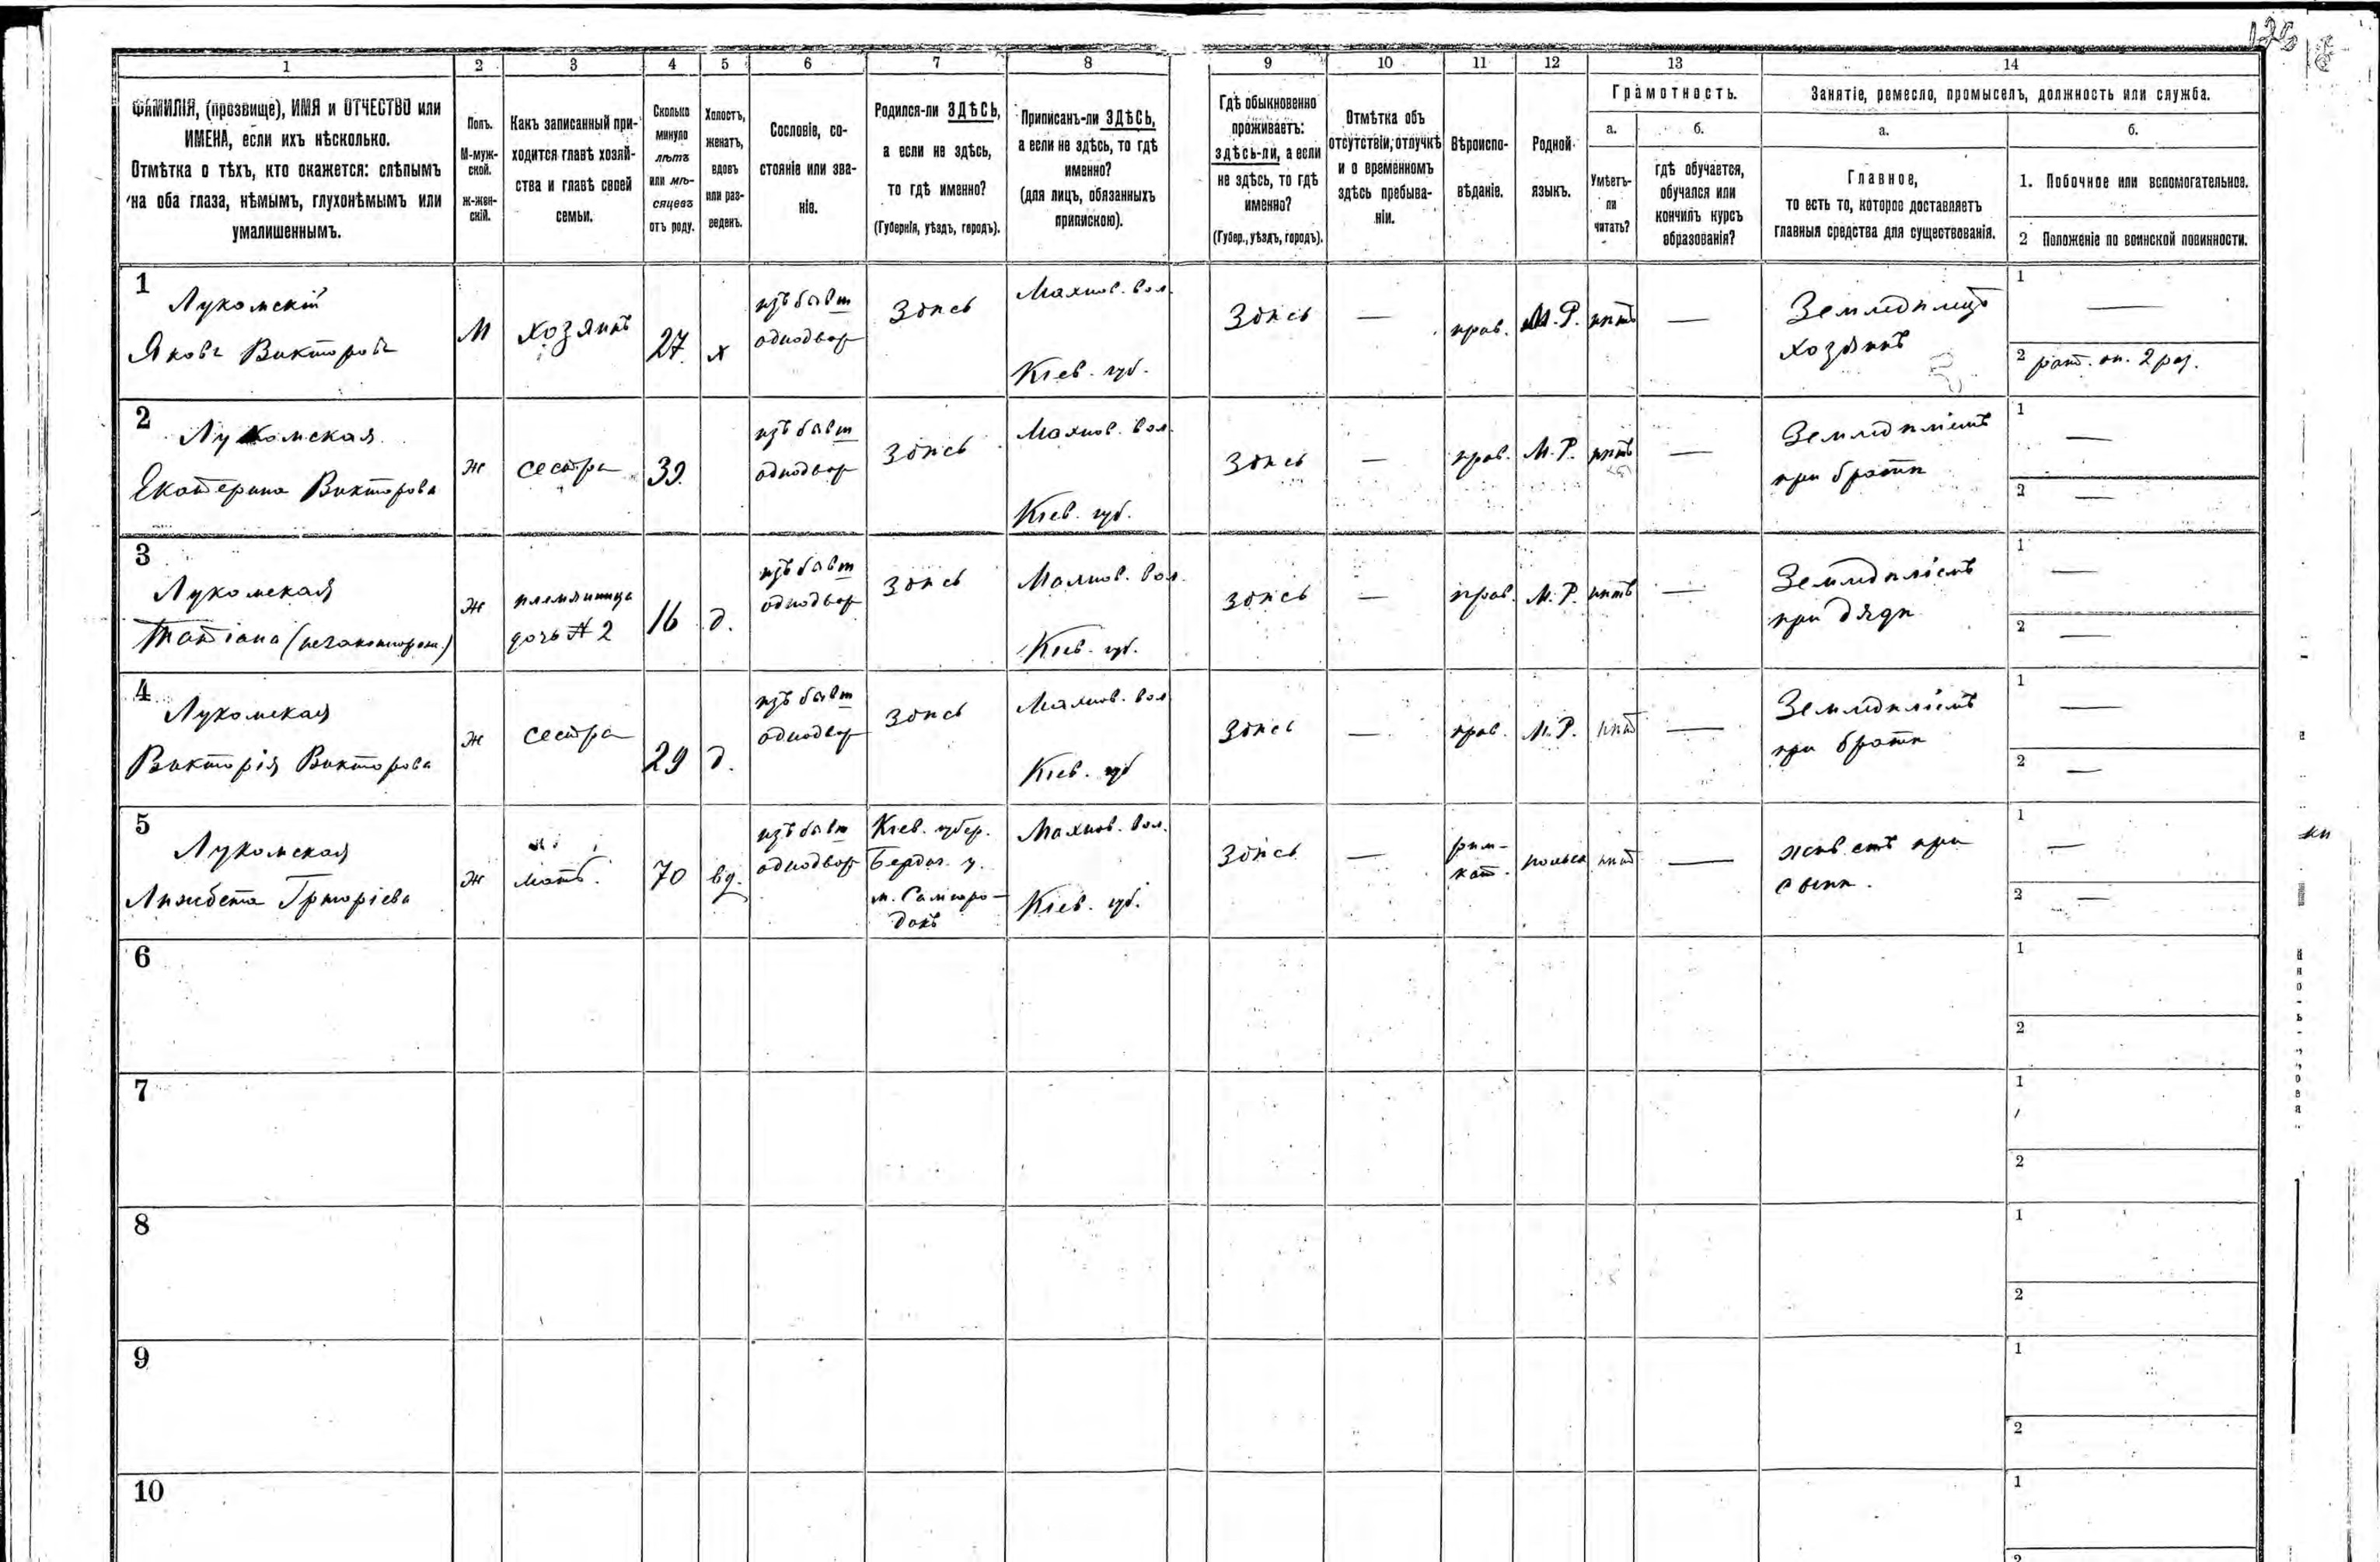 125
1
2
3
4
5
6
7
8
9
10
11
12
13
14
ФАМИЛІЯ, (прозвище), ИМЯ и ОТЧЕСТВО или
ИМЕНА, если ихъ нѣсколько.
Отмѣтка о тѣхъ, кто окажется: слѣпымъ
на оба глаза, нѣмымъ, глухонѣмымъ или
умалишеннымъ.
Полъ.
М-муж-
ской.
ж-жен-
скій.
Какъ записанный при-
ходится главѣ хозяй-
ства и главѣ своей
семьи.
Сколько
минуло
лѣтъ
или мѣ-
сяцевъ
отъ роду.
Холостъ,
женатъ,
вдовъ
или раз-
веденъ.
Сословіе, со-
стояніе или зва-
ніе.
Родился-ли ЗДѢСЬ,
а если не здѣсь,
то гдѣ именно?
(Губернія, уѣздъ, городъ).
Приписанъ-ли ЗДѢСЬ,
а если не здѣсь, то гдѣ
именно?
(для лицъ, обязанныхъ
припискою).
Гдѣ обыкновенно
проживаетъ:
здѣсь-ли, а если
не здѣсь, то гдѣ
именно?
(Губер., уѣздъ, городъ).
Отмѣтка объ
отсутствіи, отлучкѣ
и о временномъ
здѣсь пребыва-
ніи.
Вѣроиспо-
вѣданіе.
Родной
языкъ.
Грамотность.
а.
Умѣетъ-
ли
читать?
б.
гдѣ обучается,
обучался или
кончилъ курсъ
образованія?
Занятіе, ремесло, промыселъ, должность или служба.
а.
Главное,
то есть то, которое доставляетъ
главныя средства для существованія.
б.
1. Побочное или вспомогательное.
2 Положеніе по воинской повинности.
1
Лукомскій
Яковъ Викторовъ
М
хозяинъ
27
х
изъ бывш
однодвор
Здѣсь
Махнов. вол.
Кіев. губ.
Здѣсь
—
прав.
М. Р.
нѣтъ
—
Земледѣлецъ
хозяинъ
1
—
2 рат. оп. 2 раз.
2
Лукомская
Екатерина Викторова
ж
сестра
39
изъ бывш
однодвор
Здѣсь
Махнов. вол.
Кіев. губ.
Здѣсь
—
прав.
М. Р.
нѣтъ
—
Земледѣліемъ
при братѣ
1
—
2
—
3
Лукомская
Татіана (незаконнорож.)
ж
племянница
дочь № 2
16
д.
изъ бывш
однодвор
Здѣсь
Махнов. вол.
Кіев. губ.
Здѣсь
—
прав.
М. Р.
нѣтъ
—
Земледѣліемъ
при дядѣ
1
—
2
—
4
Лукомская
Викторія Викторова
ж
сестра
29
д.
изъ бывш
однодвор
Здѣсь
Махнов. вол.
Кіев. губ
Здѣсь
—
прав.
М. Р.
нѣт
—
Земледѣліемъ
при братѣ
1
—
2
—
5
Лукомская
Лижбета Григоріева
ж
мать.
70
вд.
изъ бывш
однодвор
Кіев. губер.
Бердич. у.
м. Самгоро-
докъ
Махнов. вол.
Кіев. губ.
Здѣсь
—
рим-
кат.
польск
нѣт
—
живетъ при
сынѣ.
1
—
2
—
6
1
2
7
1
2
8
1
2
9
1
2
10
1
2